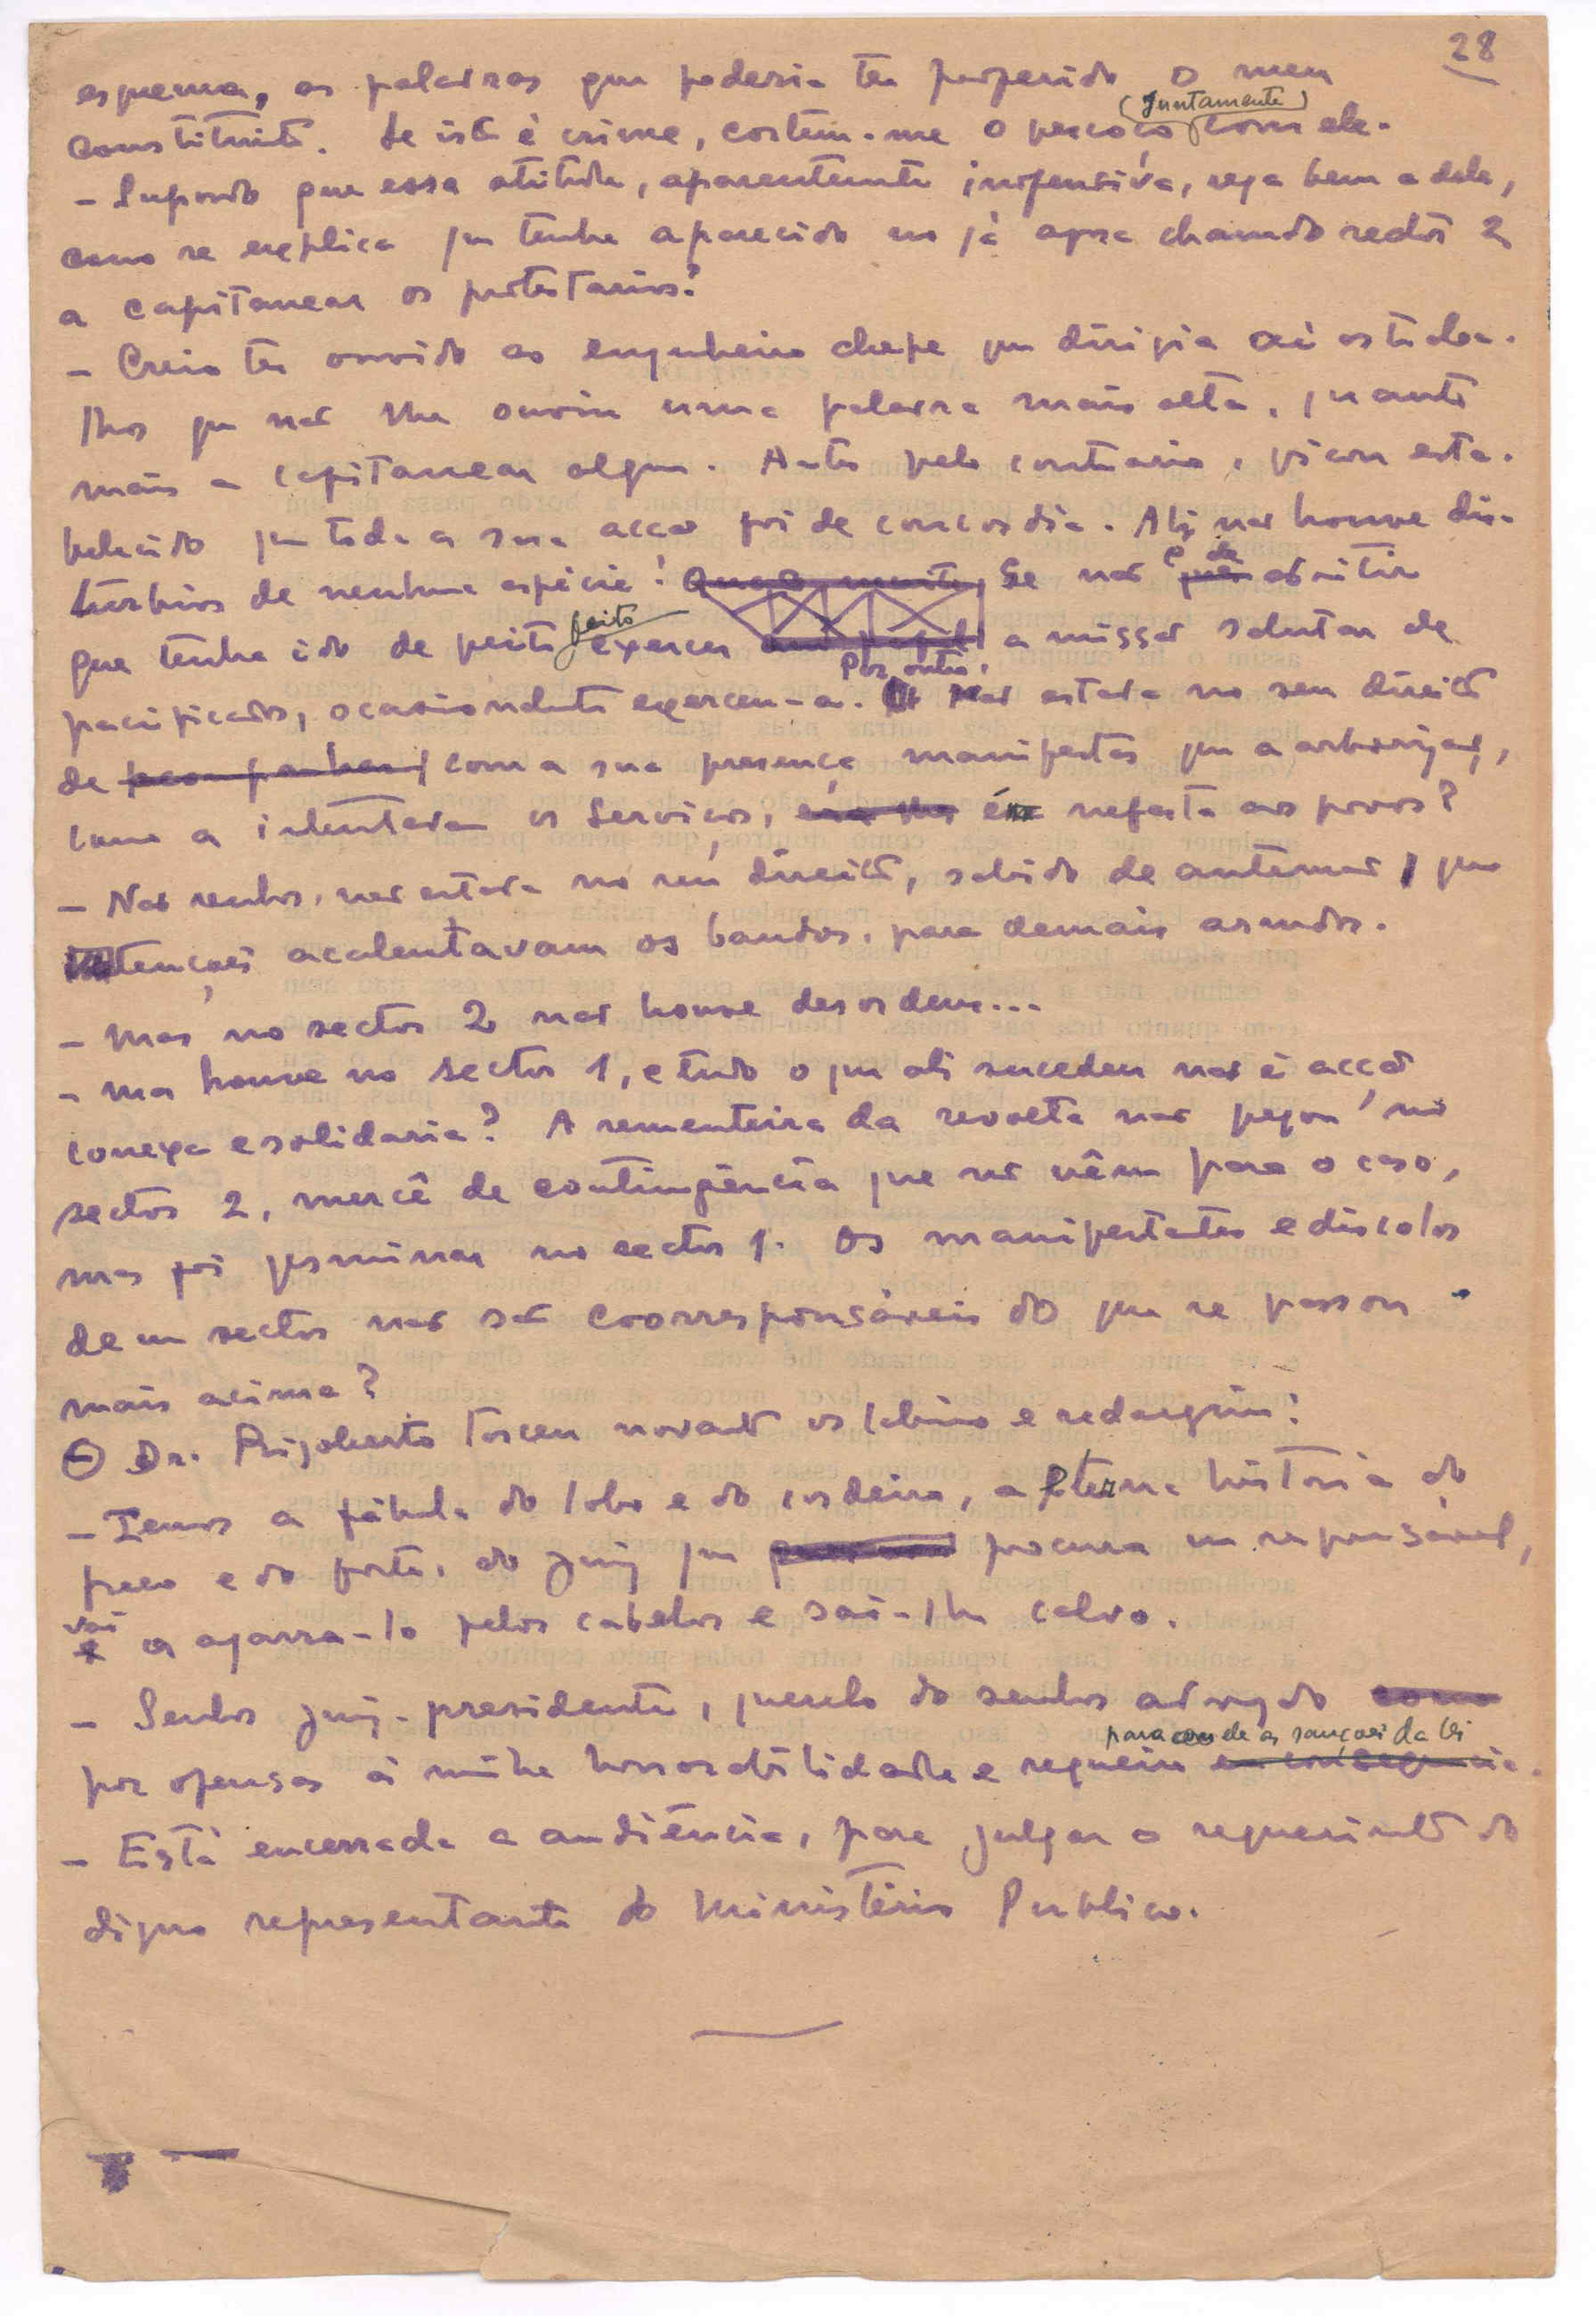 28
esquema, as palavras que poderia ter proferido o meu
(juntamente)
constituinte. Se isto é crime, cortem-me o pescoço com ele.
- Supondo que essa atitude, aparentemente inofensiva, seja bem a dele,
como se explica que tenha aparecido no já agora chamado sector 2
a capitanear os protestários?
- Creio ter ouvido ao engenheiro chefe que dirigia aí os traba-
lhos que não lhe ouviu uma palavra mais alta, quanto
mais a capitanear algum. Antes pelo contrário, ficou esta-
belecido que toda a sua acção foi de concórdia. Ali não houve dis-
túrbios de nenhuma espécie! Se não é de admitir
que tenha ido de peito feito exercer a missão salutar de
Por outro,
pacificador, ocasionalmente exerceu-a. não estava no seu direito
de com a sua presença manifestar que a arborização,
como a intentavam os Serviços, é nefasta aos povos?
- Não senhor, não estava no seu direito, sabido de antemão que
tenções acalentavam os bandos, para demais armados.
- Mas no sector 2 não houve desordem...
- Mas houve no sector 1, e tudo o que ali sucedeu não é acção
conexa e solidaria? A sementeira da revolta não pegou no
sector 2, mercê de contingência que não vêm para o caso,
mas foi germinar no sector 1. Os manifestantes e discolos
de um sector não são coorresponsáveis do que se passou
mais acima?
O Dr. Rigoberto torceu novamente os lábios e redarguiu:
- Temos a fábula do lobo e do cordeiro, a eterna história do
fraco e do forte, do juiz que procura um responsável,
vai
a agarra-lo pelos cabelos e sai-lhe calvo.
- Senhor juiz-presidente, querelo do senhor advogado como
para ele as sanções da lei
por ofensas à minha honorabilidade e requeiro em consequência.
- Está encerrada a audiência, para julgar o requerimento do
digno representante do Ministério Publico.